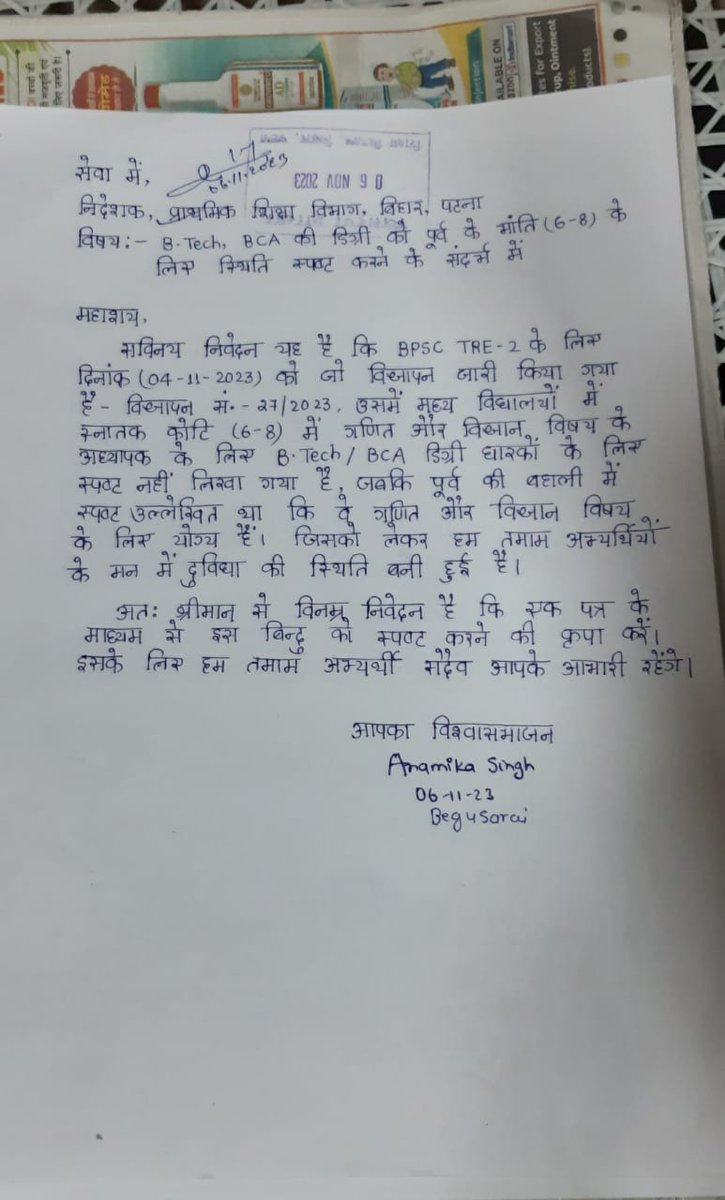 AD
ILABLE ON
es for Export
up, Ointment
oducts).
06.11.2023
0 6 NOV 2023
सेवा में,
निदेशक, प्राथमिक शिक्षा विभाग, बिहार, पटना
विषय:- B.Tech, BCA की डिग्री को पूर्व के भांति (6-8) के
लिए स्थिति स्पष्ट करने के संदर्भ में
महाशय,
सविनय निवेदन यह है कि BPSC TRE-2 के लिए
दिनांक (04-11-2023) को जो विज्ञापन जारी किया गया
है - विज्ञापन सं. - 27/2023, उसमें मध्य विद्यालयों में
स्नातक कोटि (6-8) में गणित और विज्ञान विषय के
अध्यापक के लिए B.Tech/BCA डिग्री धारकों के लिए
स्पष्ट नहीं लिखा गया है, जबकि पूर्व की बहाली में
स्पष्ट उल्लेखित था कि वे गणित और विज्ञान विषय
के लिए योग्य हैं। जिसको लेकर हम तमाम अभ्यर्थियों
के मन में दुविधा की स्थिति बनी हुई है।
अतः श्रीमान् से विनम्र निवेदन है कि एक पत्र के
माध्यम से इस बिन्दु को स्पष्ट करने की कृपा करें।
इसके लिए हम तमाम अभ्यर्थी सदैव आपके आभारी रहेंगे।
आपका विश्वासभाजन
Anamika Singh
06-11-23
Begusarai